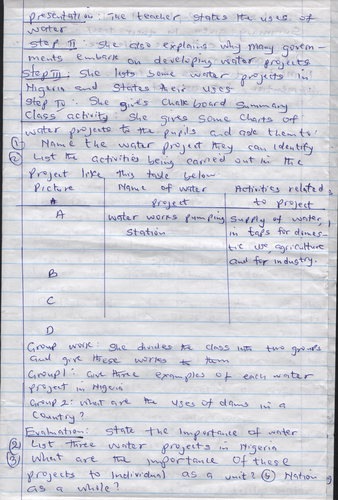 presentation: The teacher states the uses of
water
step II: she also explains why many govern-
ments embark on developing water projects
Step III: She lists some water projects in
Nigeria and States their uses
Step IV: She gives Chalk board Summary
Class activity She gives Some Charts of
water projects to the pupils and ask them to:
① Name the water project they can identify
② List the activities being carried out in the
project like this table below
Picture Name of water Activities related
A project to project
A water works pumping Supply of water
Station in taps for domes-
tic use, agriculture
and for industry.
B
C
D
Group work: She divides the class into two groups
and give these works to them
Group 1: Give three examples of each water
project in Nigeria
Group 2: What are the uses of dams in a
Country?
Evaluation: State the importance of water
② List three water projects in Nigeria
③ What are the importance of these
projects to individual as a unit? ④ Nation
as a whole?